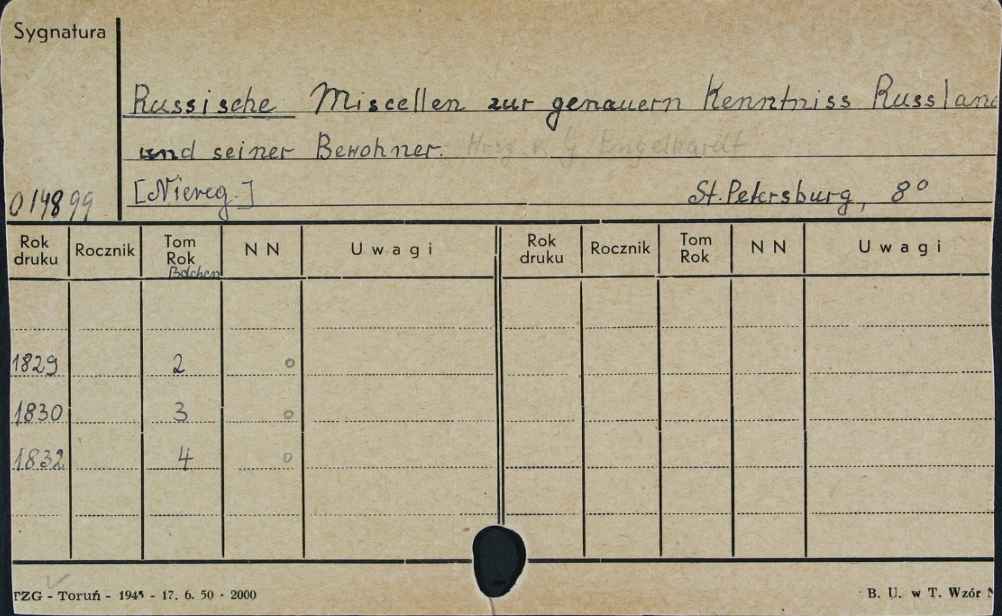 Sygnatura
Russische Miscellen zur genauern Kenntniss Russland
und seiner Bewohner. Hrsg. v. G Engelhardt
014899 [Niereg.] St. Petersburg, 8°
Rok druku Rocznik Tom Rok Bdchen N N Uwagi Rok druku Rocznik Tom Rok N N Uwagi
1829 2 o
1830 3 o
1832 4 o
TZG - Toruń - 1945 - 17. 6. 50 - 2000 B. U. w T. Wzór N